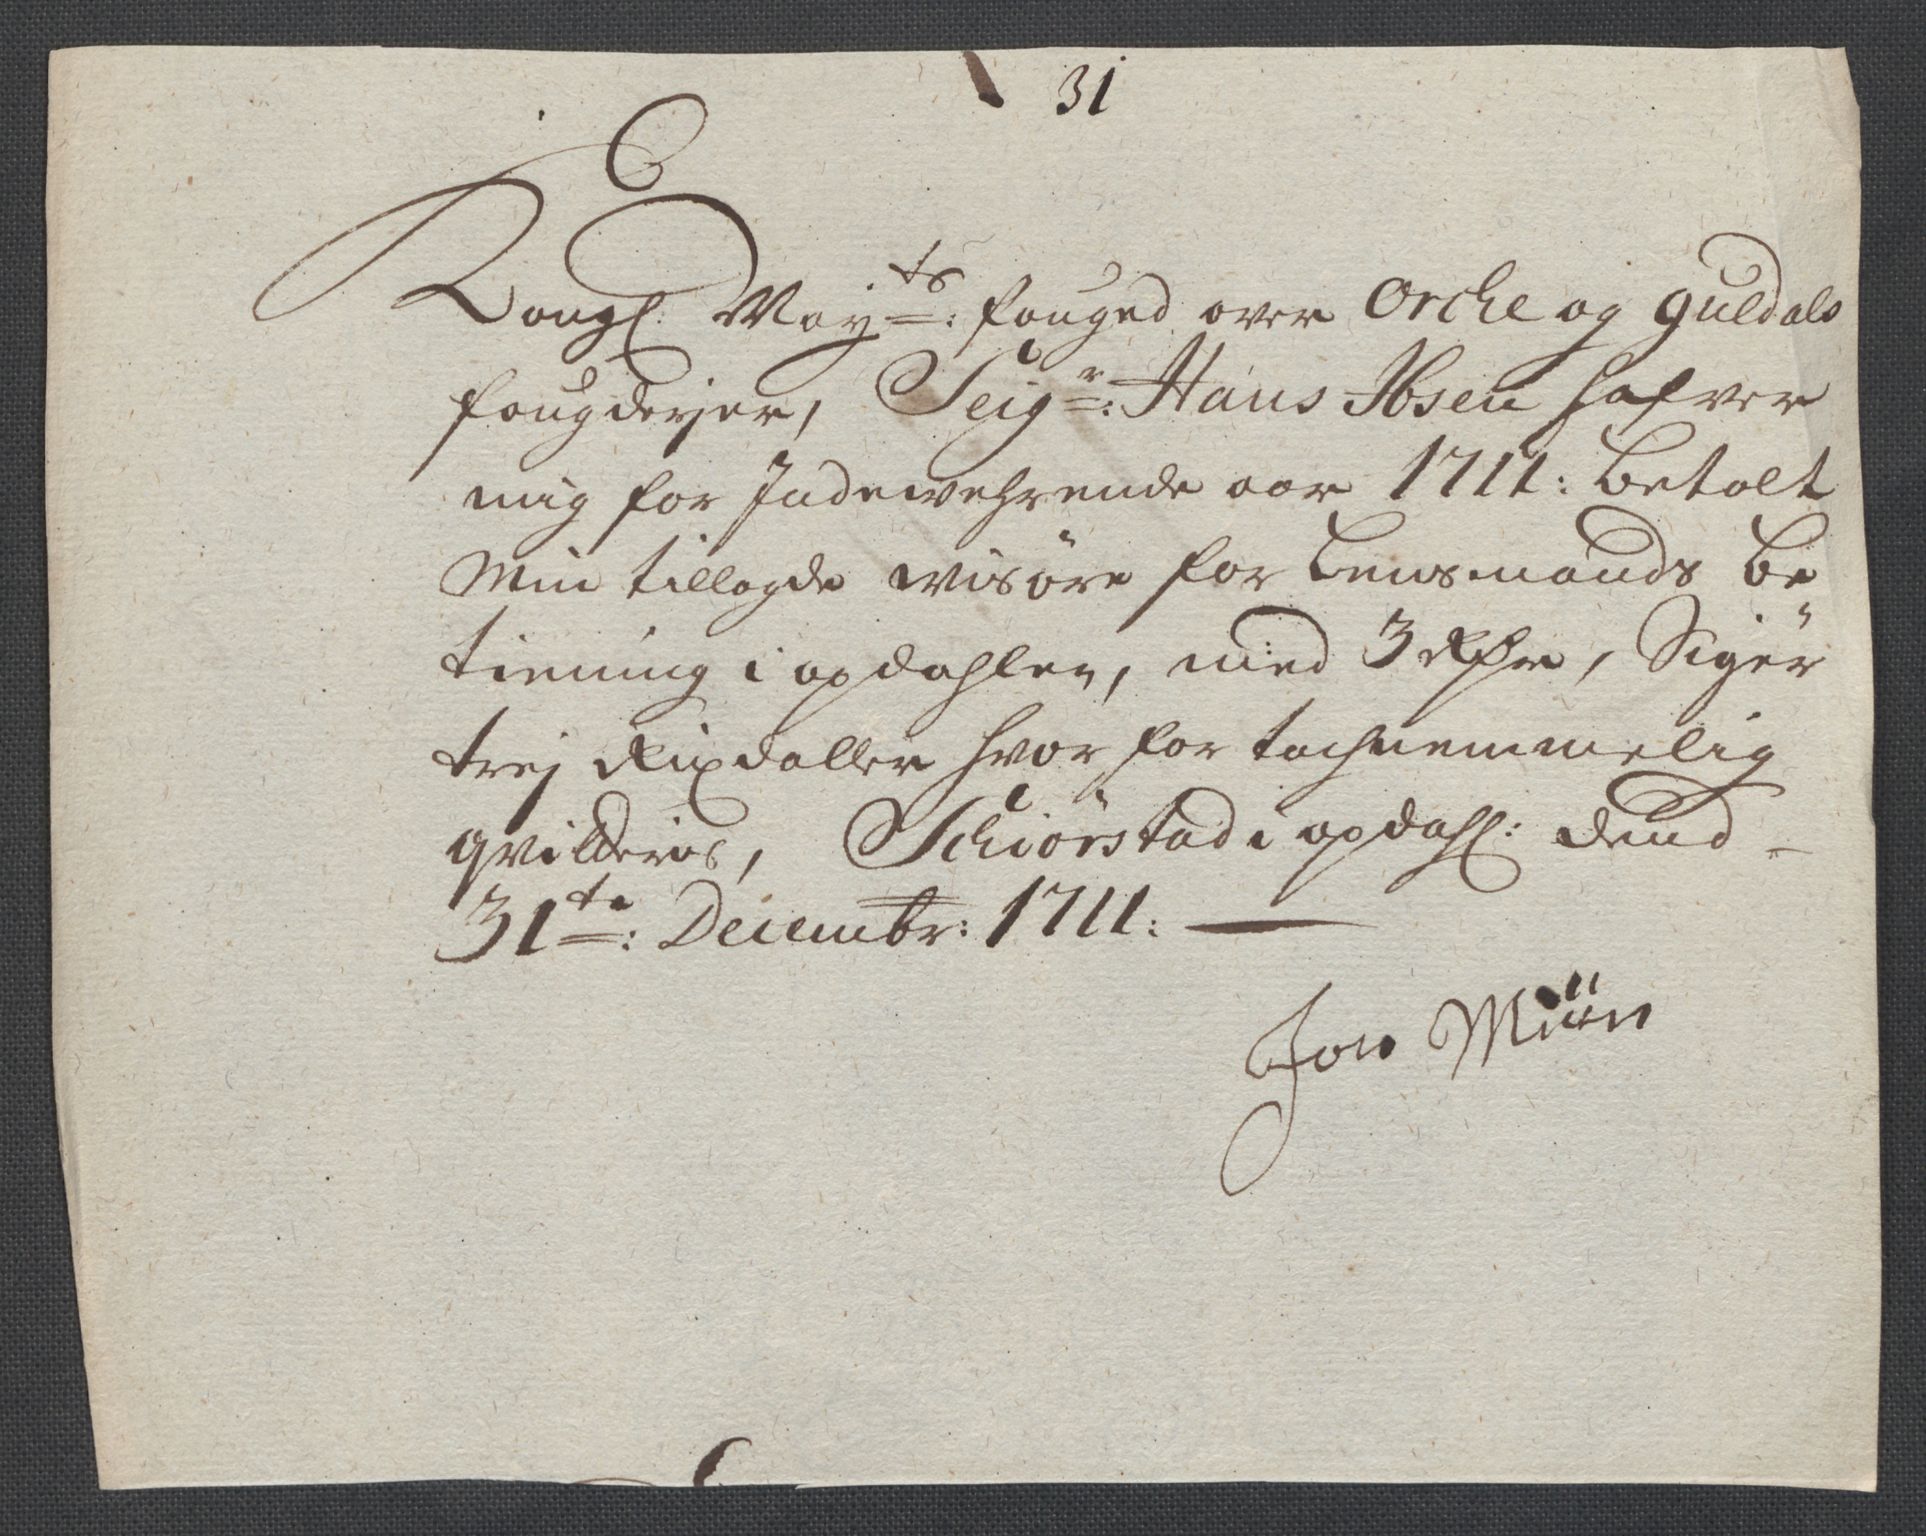 31
Kongl: May:ts: fouged over Orche og Guldals
fougderjer, Seigr: Hans Ibsen hafver
mig for Indewehrende aar 1711: betalt
Min tillagde wisöre for Lensmands be
tiening i opdahlen, med 3 Rdr, Siger
trej Rixdaller hvor for tachnemmelig
qvitteris, Schiörstad i opdahl: dend
31te: Decembr: 1711:
Jon